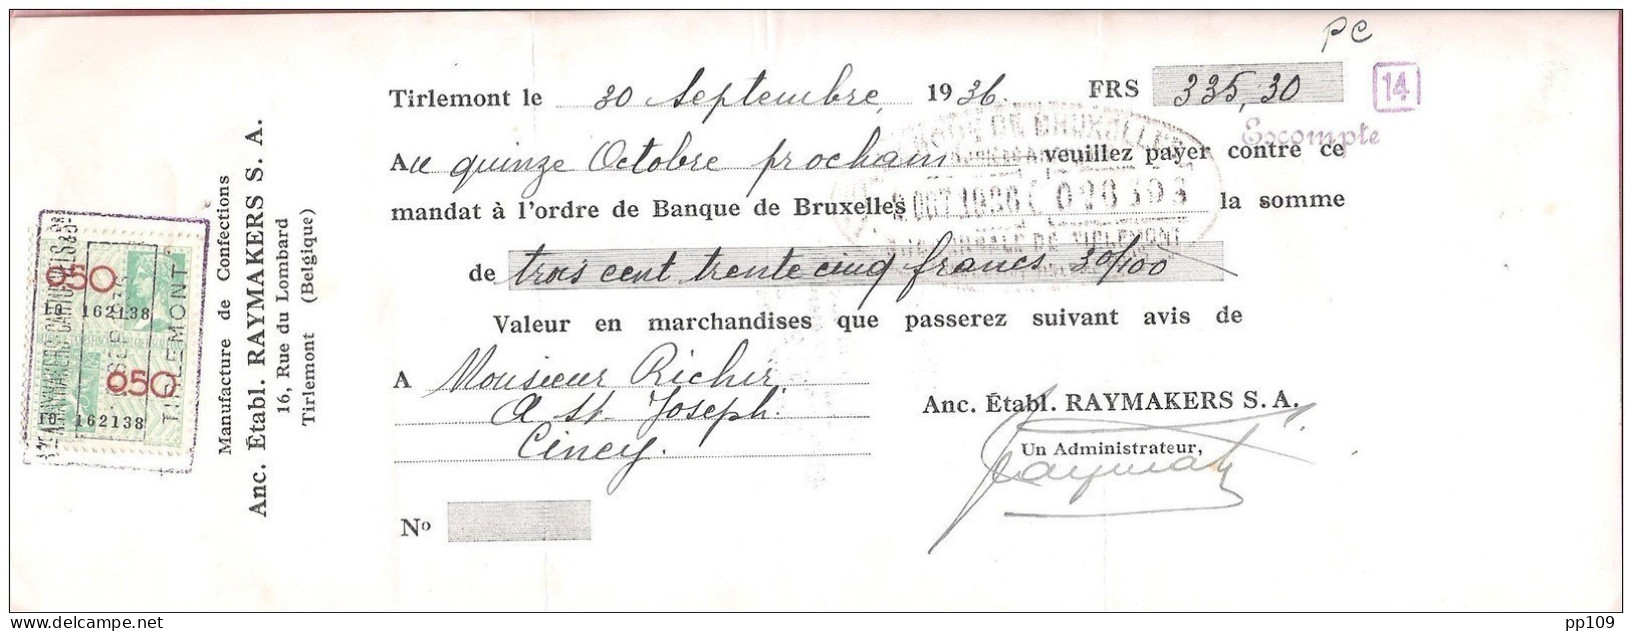 PC
Tirlemont le 30 Septembre 1936. FRS 335,30
14
Escompte
Au quinze Octobre prochain veuillez payer contre ce
mandat à l'ordre de Banque de Bruxelles la somme
de trois cent trente cinq francs 30/100
Valeur en marchandises que passerez suivant avis de
A Monsieur Richir.
a St. Joseph.
Ciney.
Anc. Établ. RAYMAKERS S. A.
Un Administrateur,
No
Manufacture de Confections
Anc. Établ. RAYMAKERS S. A.
16, Rue du Lombard
Tirlemont (Belgique)
050
162138
TIRLEMONT
050
162138
BANQUE DE BRUXELLES
pp109